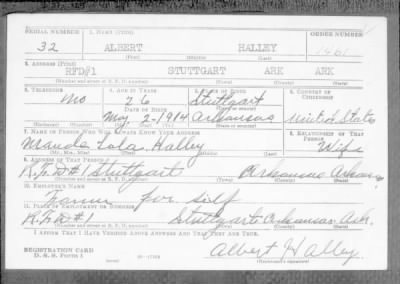 SERIAL NUMBER 1. NAME (Print) ORDER NUMBER
32 ALBERT HALLEY 1461
(First) (Middle) (Last)
2. ADDRESS (Print)
RFD#1 STUTTGART ARK ARK
(Number and street or R. F. D. number) (Town) (County) (State)
3. TELEPHONE 4. AGE IN YEARS 5. PLACE OF BIRTH 6. COUNTRY OF CITIZENSHIP
no 26 Stuttgart
DATE OF BIRTH
May 2-1914 Arkansas United States
(Exchange) (Number) (Mo.) (Day) (Yr.) (State or country)
7. NAME OF PERSON WHO WILL ALWAYS KNOW YOUR ADDRESS 8. RELATIONSHIP OF THAT PERSON
Maude Lola Halley Wife
(Mr., Mrs., Miss) (First) (Middle) (Last)
9. ADDRESS OF THAT PERSON
R.F.D#1 Stuttgart Arkansas Arkansas
(Number and street or R. F. D. number) (Town) (County) (State)
10. EMPLOYER'S NAME
Farmer for self
11. PLACE OF EMPLOYMENT OR BUSINESS
R.F.D#1 Stuttgart Arkansas Ark.
(Number and street or R. F. D. number) (Town) (County) (State)
I AFFIRM THAT I HAVE VERIFIED ABOVE ANSWERS AND THAT THEY ARE TRUE.
REGISTRATION CARD
D. S. S. Form 1 Albert Halley
(Registrant's signature)